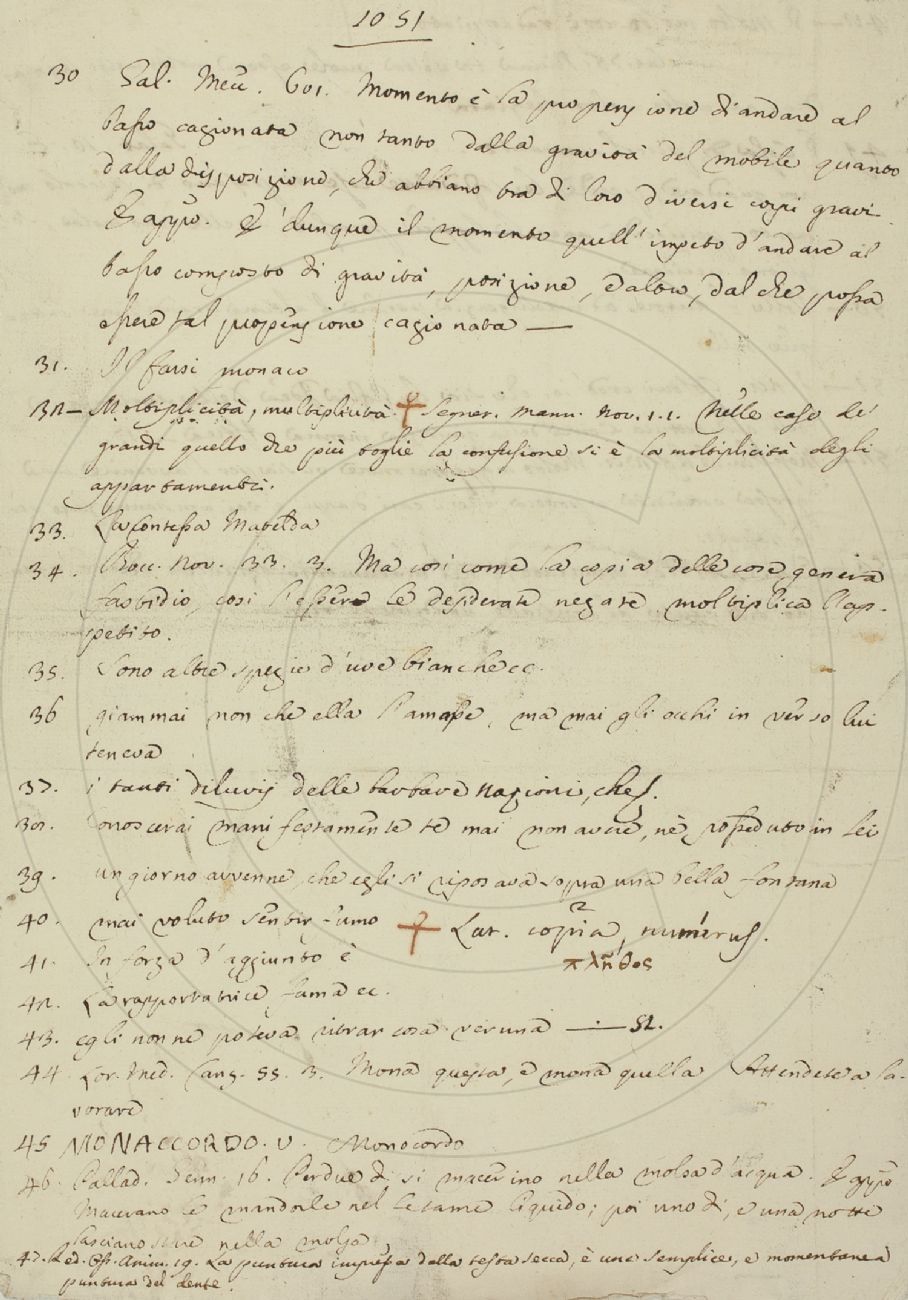 1051
30 Gal. Mecc. 601. Momento è la propensione d'andare al
basso cagionata non tanto dalla gravità del mobile quanto
dalla disposizione, che abbiano tra di loro diversi corpi gravi
E appo. E' dunque il momento quell'impeto d'andare al
basso composto di gravità, posizione, e altro, dal che possa
essere tal propensione cagionata —
31. Il farsi monaco
32— Moltiplicità, multiplicità. Segner. Mann. Nov. 1.1. Nelle case de'
grandi quello che più toglie la confusione si è la moltiplicità degli
appartamenti.
33. La Contessa Matelda
34. Bocc. Nov. 33. 3. Ma così come la copia delle cose genera
fastidio, così l'essere le desiderate negate moltiplica l'ap-
petito.
35. Sono altre spezie d'uve bianche ec.
36 giammai non che ella l'amasse, ma mai gli occhi in verso lui
teneva
37. i tanti diluvij delle barbare nazioni, che
38. conoscerai manifestamente te mai non avere, nè posseduto in lei
39. un giorno avvenne, che egli si riposava sopra una bella fontana
40. mai voluto sentir fumo Lat. copia, numerus.
πλῆθος
41. In forza d'aggiunto è
42. La rapportatrice fama ec.
43. egli non ne poteva ritrar cosa veruna — 52.
44. Lor. Med. Canz. 55. 3. Mona questa, e mona quella Attendete a la-
vorare
45 MONACCORDO. V. Monocordo
46. Pallad. Genn. 16. Per due dì si macerino nella molsa d'acqua. E appo
Macerano le mandorle nel letame liquido; poi uno dì, e una notte
lasciano stare nella molsa,
47. Red. Oss. Anim. 19. La puntura impressa dalla testa secca, è una semplice, e momentanea
puntura del dente.